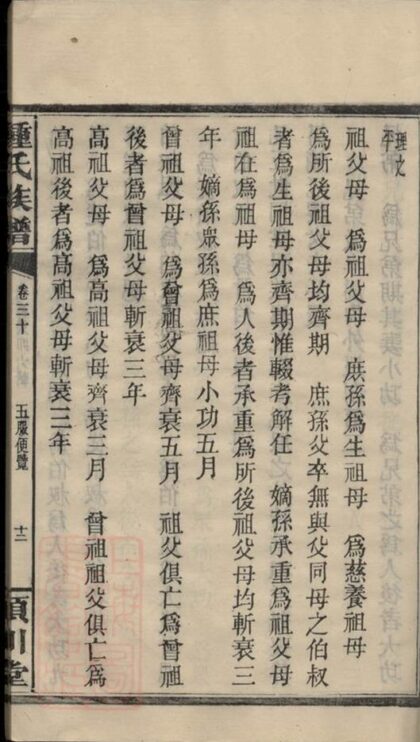 祖父母　爲祖父母　庶孫爲生祖母　爲慈養祖母
爲所後祖父母均齊期　庶孫父卒無與父同母之伯叔
者爲生祖母亦齊期惟輟考解任　嫡孫承重爲祖父母
祖在爲祖母　爲人後者承重爲所後祖父母均斬衰三
年　嫡孫衆孫爲庶祖母小功五月
曾祖父母　爲曾祖父母齊衰五月　祖父俱亡爲曾祖
後者爲曾祖父母斬衰三年
高祖父母　爲高祖父母齊衰三月　曾祖祖父俱亡爲
高祖後者爲高祖父母斬衰三年
鍾氏族譜
卷三十
五服便覽
十二
潁川堂